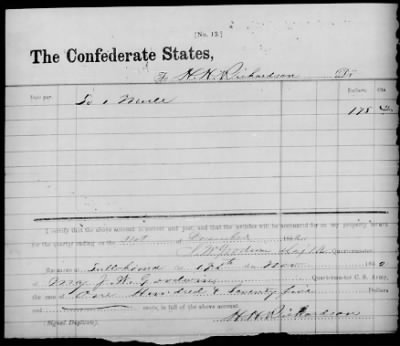 [No. 12.]
The Confederate States,
To H. H. Richardson Dr.
Date per. Dollars. Cts
To 1 Mule 175
I certify that the above account is correct and just, and that the articles will be accounted for on my property return
for the quarter ending on the 31st of December 186
J W Goodwin Quartermaster.
Received at Tullahoma 17th of Nov 1862
Maj J. W. Goodwin Quartermaster C. S. Army,
the sum of One Hundred & Seventy five Dollars
and cents, in full of the above account
(Signed Duplicate.) H. H. Richardson